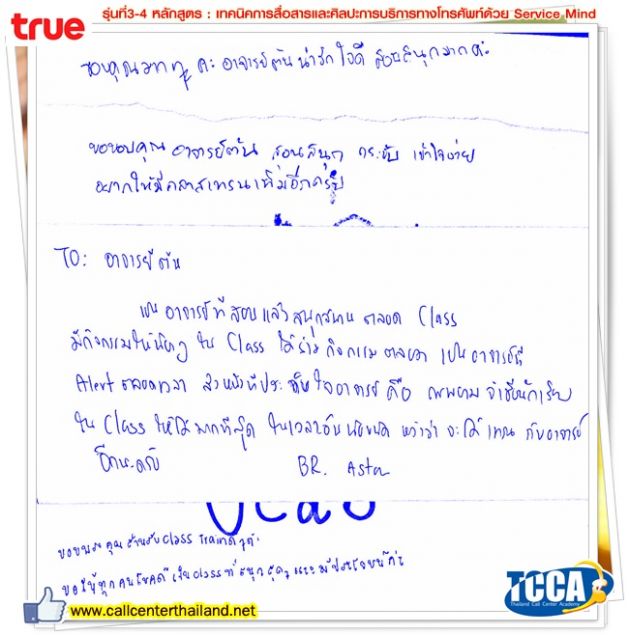 รุ่นที่3-4 หลักสูตร : เทคนิคการสื่อสารและศิลปะการบริการทางโทรศัพท์ด้วย Service Mind
true
ขอบคุณมากๆ ค่ะ อาจารย์ต้นน่ารัก ใจดี สอนสนุกมากค่ะ
ขอขอบคุณ อาจารย์ต้น สอนสนุก กระชับ เข้าใจง่าย
อยากให้มีคลาสเทรนเพิ่มอีกครับ
TO: อาจารย์ต้น
เป็นอาจารย์ที่สอนแล้วสนุกสนาน ตลอด Class
มีกิจกรรมให้น้องๆ ใน Class ได้ร่วมกิจกรรมตลอด เป็นอาจารย์ที่
Alert ตลอดเวลา ส่วนหนึ่งที่ประทับใจอาจารย์ คือ พยายามจำชื่อนักเรียน
ใน Class ให้ได้มากที่สุด ในเวลาอันน้อยนิด หวังว่า จะได้เทรน กับอาจารย์
อีกนะครับ
BR. Aster
ขอขอบคุณสำหรับ Class Training
ขอให้ทุกคนโชคดี เป็น class ที่สนุก
www.callcenterthailand.net
TCCA
Thailand Call Center Academy